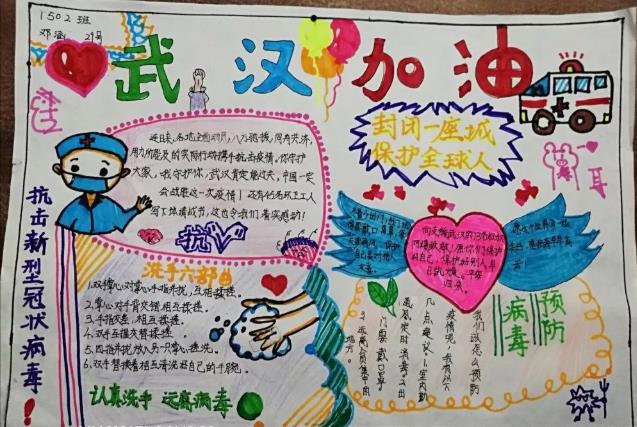 1502班
邓涵 21号
武汉加油
封闭一座城
保护全球人
抗击新型冠状病毒!
近日来,各地全面动员,八方驰援,同舟共济,
用力所能及的实际行动携手抗击疫情,你守护
大家,我守护你,武汉肯定能过关,中国一定
会战胜这一次疫情!
洗手六部曲
1.双掌心对掌心手指并拢,互相揉搓。
2.掌心对手背交错相互揉搓。
3.手指交差,相互揉搓。
4.双手互握交替揉搓。
5.四指并拢放入另一只掌心搓洗。
6.双手替换着相互清洗到自己的手腕。
认真洗手 远离病毒
预防
病毒
我们该怎么预防
疫情呢,我有以下
几点建议:1.室内勤
通风定时消毒。2.出
门要戴口罩。
3.远离人员集中的
地方。